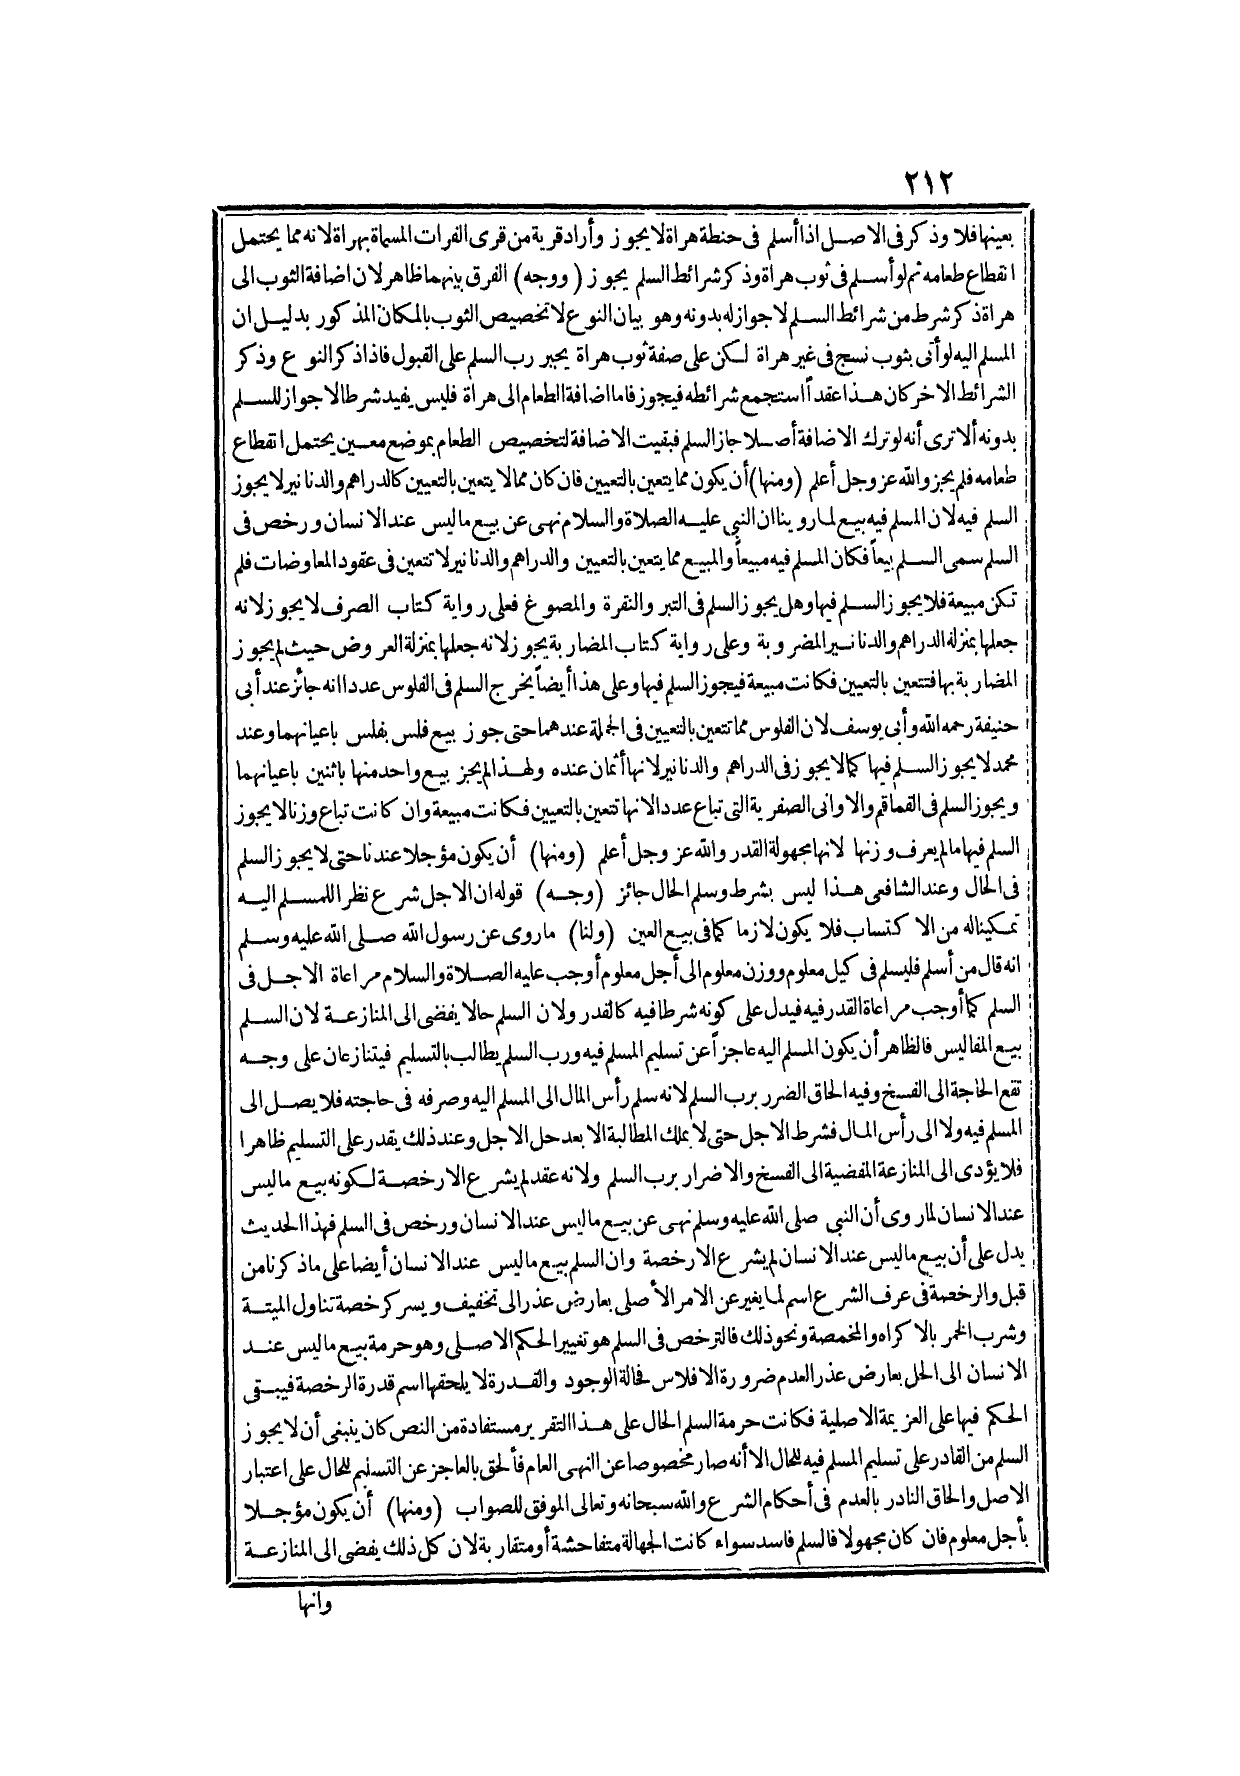 ٢١٢
بعينها فلا وذكر فى الاصل اذا أسلم فى حنطة هراة لا يجوز وأراد قرية من قرى الفرات المسماة بهراة لانه مما يحتمل
انقطاع طعامه ثم لو أسلم فى ثوب هراة وذكر شرائط السلم يجوز (ووجه) الفرق بينهما ظاهر لان اضافة الثوب الى
هراة ذكر شرط من شرائط السلم لا جواز له بدونه وهو بيان النوع لا تخصيص الثوب بالمكان المذكور بدليل ان
المسلم اليه لو أتى بثوب نسج فى غير هراة لكن على صفة ثوب هراة يجبر رب السلم على القبول فاذا ذكر النوع وذكر
الشرائط الاخر كان هذا عقداً استجمع شرائطه فيجوز فاما اضافة الطعام الى هراة فليس يفيد شرطا لا جواز للسلم
بدونه ألا ترى أنه لو ترك الاضافة أصلا جاز السلم فبقيت الاضافة لتخصيص الطعام بموضع معين يحتمل انقطاع
طعامه فلم يجز والله عز وجل أعلم (ومنها) أن يكون مما يتعين بالتعيين فان كان مما لا يتعين بالتعيين كالدراهم والدنانير لا يجوز
السلم فيه لان المسلم فيه بيع لما روينا ان النبى عليه الصلاة والسلام نهى عن بيع ما ليس عند الانسان ورخص فى
السلم سمى السلم بيعاً فكان المسلم فيه مبيعاً والمبيع مما يتعين بالتعيين والدراهم والدنانير لا تتعين فى عقود المعاوضات فلم
تكن مبيعة فلا يجوز السلم فيها وهل يجوز السلم فى التبر والنقرة والمصوغ فعلى رواية كتاب الصرف لا يجوز لانه
جعلها بمنزلة الدراهم والدنانير المضروبة وعلى رواية كتاب المضاربة يجوز لانه جعلها بمنزلة العروض حيث لم يجوز
المضاربة بها فتتعين بالتعيين فكانت مبيعة فيجوز السلم فيها وعلى هذا أيضاً يخرج السلم فى الفلوس عددا انه جائز عند أبى
حنيفة رحمه الله وأبى يوسف لان الفلوس مما تتعين بالتعيين فى الجملة عندهما حتى جوز بيع فلس بفلس باعيانهما وعند
محمد لا يجوز السلم فيها كما لا يجوز فى الدراهم والدنانير لانها أثمان عنده ولهذا لم يجز بيع واحد منها باثنين باعيانهما
ويجوز السلم فى القماقم والاوانى الصفرية التى تباع عددا لانها تتعين بالتعيين فكانت مبيعة وان كانت تباع وزنا لا يجوز
السلم فيها ما لم يعرف وزنها لانها مجهولة القدر والله عز وجل أعلم (ومنها) أن يكون مؤجلا عندنا حتى لا يجوز السلم
فى الحال وعند الشافعى هذا ليس بشرط وسلم الحال جائز (وجه) قوله ان الاجل شرع نظرا للمسلم اليه
تمكينا له من الاكتساب فلا يكون لازما كما فى بيع العين (ولنا) ما روى عن رسول الله صلى الله عليه وسلم
انه قال من أسلم فليسلم فى كيل معلوم ووزن معلوم الى أجل معلوم أوجب عليه الصلاة والسلام مراعاة الاجل فى
السلم كما أوجب مراعاة القدر فيه فيدل على كونه شرطا فيه كالقدر ولان السلم حالا يفضى الى المنازعة لان السلم
بيع المفاليس فالظاهر أن يكون المسلم اليه عاجزاً عن تسليم المسلم فيه ورب السلم يطالب بالتسليم فيتنازعان على وجه
تقع الحاجة الى الفسخ وفيه الحاق الضرر برب السلم لانه سلم رأس المال الى المسلم اليه وصرفه فى حاجته فلا يصل الى
المسلم فيه ولا الى رأس المال فشرط الاجل حتى لا يملك المطالبة الا بعد حل الاجل وعند ذلك يقدر على التسليم ظاهرا
فلا يؤدى الى المنازعة المفضية الى الفسخ والاضرار برب السلم ولانه عقد لم يشرع الا رخصة لكونه بيع ما ليس
عند الانسان لما روى أن النبى صلى الله عليه وسلم نهى عن بيع ما ليس عند الانسان ورخص فى السلم فهذا الحديث
يدل على أن بيع ما ليس عند الانسان لم يشرع الا رخصة وان السلم بيع ما ليس عند الانسان أيضا على ما ذكرنا من
قبل والرخصة فى عرف الشرع اسم لما يغير عن الامر الأصلى بعارض عذر الى تخفيف ويسر كرخصة تناول الميتة
وشرب الخمر بالاكراه والمخمصة ونحو ذلك فالترخص فى السلم هو تغيير الحكم الاصلى وهو حرمة بيع ما ليس عند
الانسان الى الحل بعارض عذر العدم ضرورة الافلاس فحالة الوجود والقدرة لا يلحقها اسم قدرة الرخصة فيبقى
الحكم فيها على العزيمة الاصلية فكانت حرمة السلم الحال على هذا التقرير مستفادة من النص كان ينبغى أن لا يجوز
السلم من القادر على تسليم المسلم فيه للحال الا أنه صار مخصوصا عن النهى العام فألحق بالعاجز عن التسليم للحال على اعتبار
الاصل والحاق النادر بالعدم فى أحكام الشرع والله سبحانه وتعالى الموفق للصواب (ومنها) أن يكون مؤجلا
بأجل معلوم فان كان مجهولا فالسلم فاسد سواء كانت الجهالة متفاحشة أو متقاربة لان كل ذلك يفضى الى المنازعة
وانها